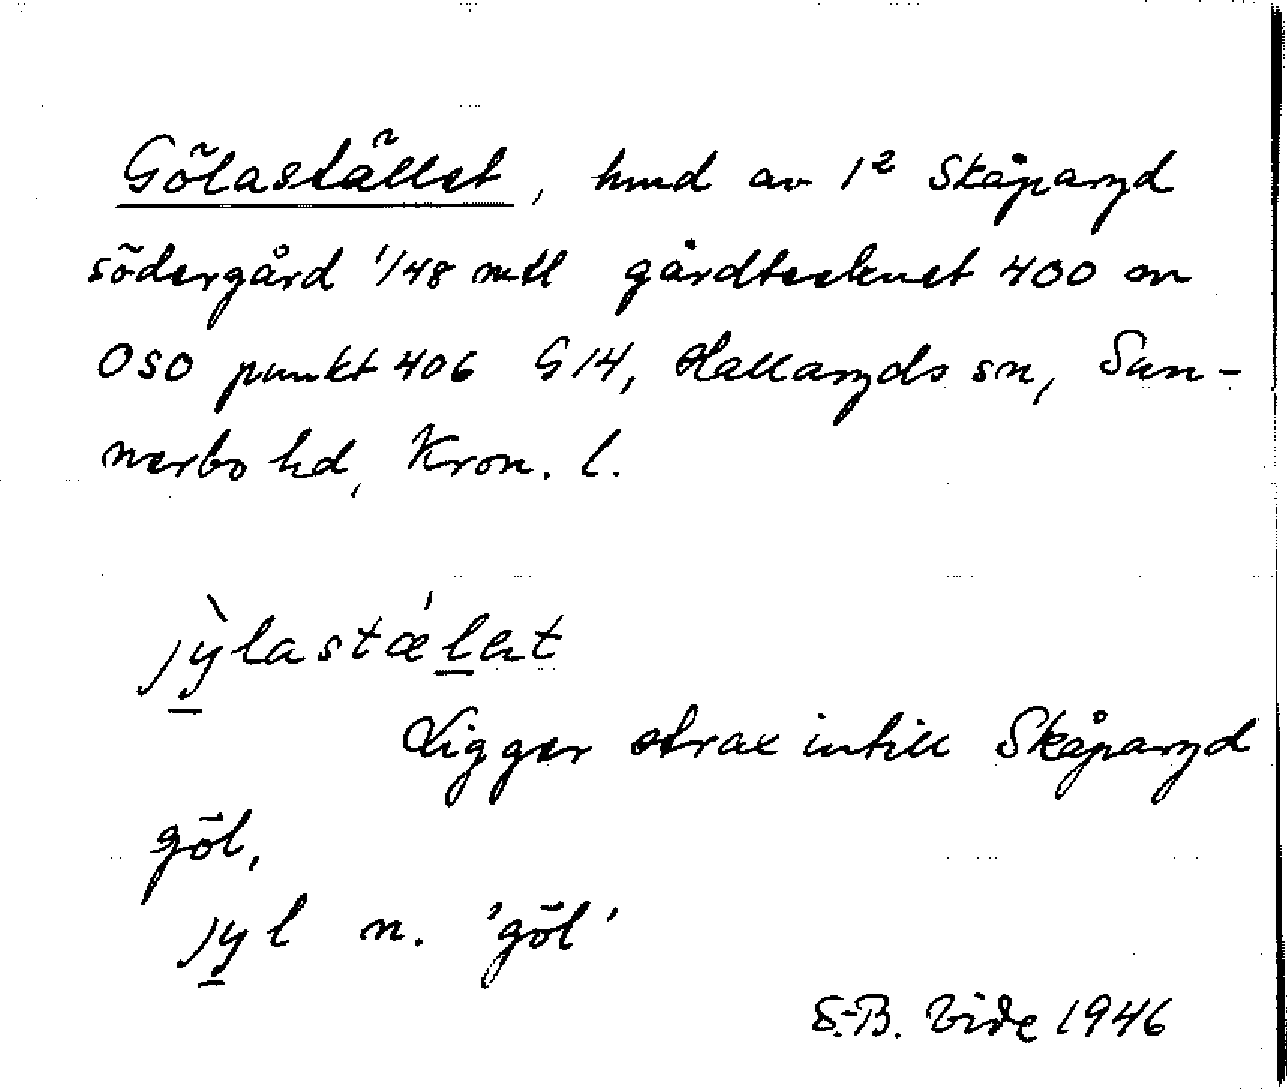 Gölastället, hmd av 1² Skåparyd
södergård 1/48 mtl gårdtecknet 400 m
OSO punkt 406 G14, Hallaryds sn, Sun-
nerbo hd, Kron. l.
jỳ̲lastæ̍l̲et
Ligger strax intill Skåparyd
göl,
jy̲l n. 'göl'
S.-B. Vide 1946